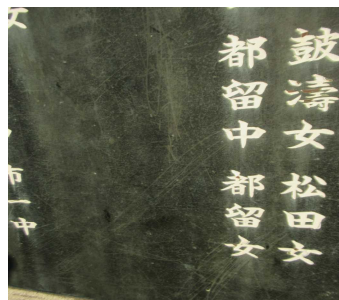 鼓濤女 松田女
都留中 都留女
女
市一中